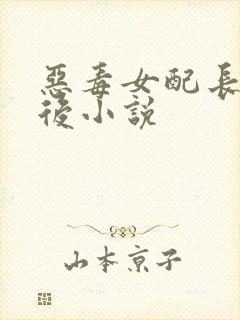 惡毒女配長
後小說
山本京子